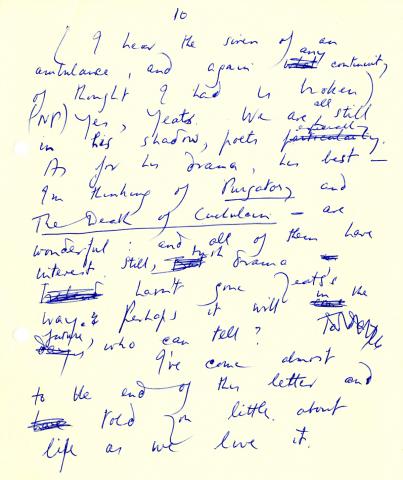 10
( I hear the siren of an
ambulance, and again any continuity
of thought I had is broken )
(NP) Yes, Yeats. We are all still
in his shadow, poets especially.
As for his drama, his best –
I'm thinking of Purgatory and
The Death of Cuchulain – are
wonderful: and all of them have
interest. Still, Irish drama
hasn't gone Yeats's
way. Perhaps it will in the
future, who can tell?
I've come almost
to the end of this letter and
told you little about
life as we live it.